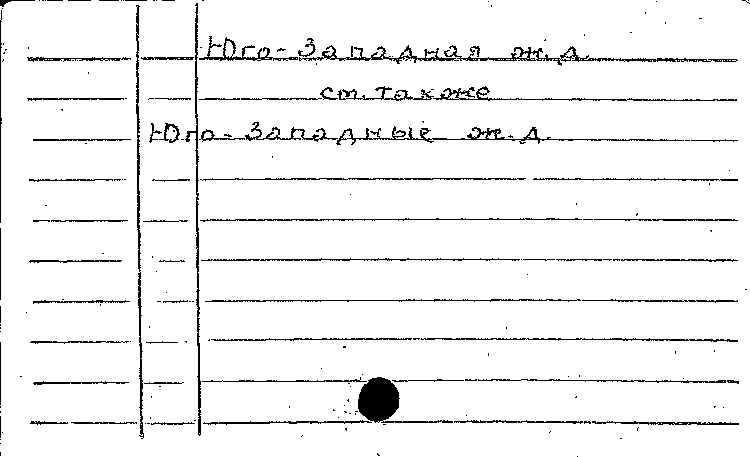 Юго-Западная ж.д.
см. также
Юго-Западные ж.д.